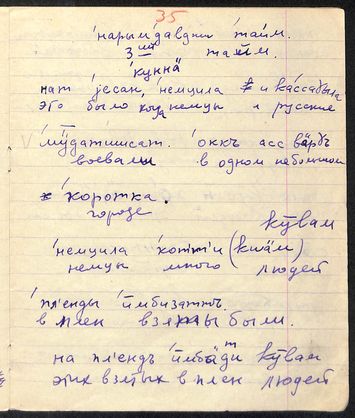 35
'нарым'давдни тайм.
3 ий тайм.
'куннӓ
нат 'jесан, 'немцила и 'ка́ссабыла
это было когда немцы и русские
'мӱдатшисат. 'оккъ асс вӓрӷъ
воевали в одном небольшом
'коротка.
городе
кӯвам
'немцила 'коттˈи (кwӓм)
немцы много людей
'плʼенды 'ӣмбизаттъ
в плен взяты были.
на плʼендъ 'ӣмбӓди кӯвам
этих взятых в плен людей